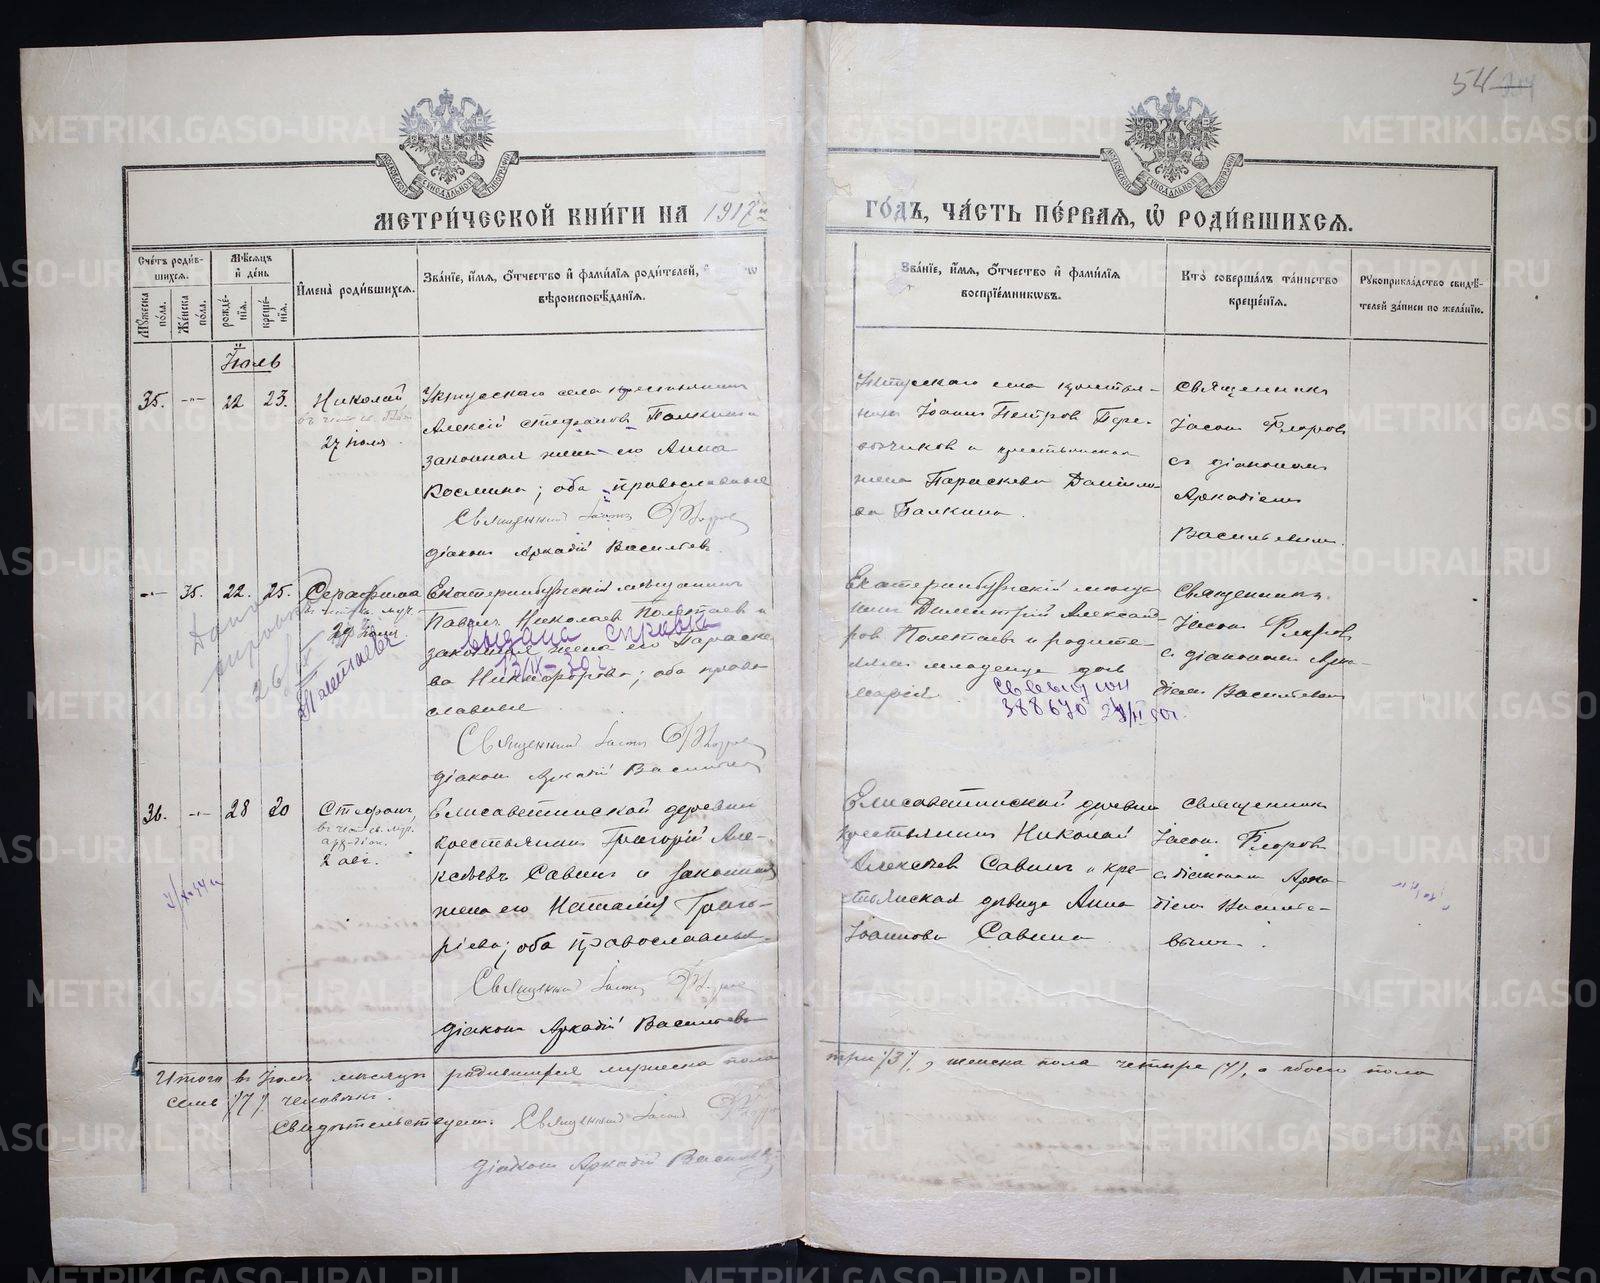 54
МЕТРИ́ЧЕСКОЙ КНИ́ГИ НА 1917 й
ГО́ДЪ, ЧА́СТЬ ПЕ́РВАЯ, Ѡ҆ РОДИ́ВШИХСЯ.
Сче́тъ роди́в-
шихся.
Му́жеска по́ла.
Же́нска по́ла.
Мѣ́сяцъ и҆ де́нь
рожде́-
нїя.
креще́-
нїя.
И҆мена̀ роди́вшихся.
Зва́нїе, и҆́мя, ѻ҆́тчество и҆ фами́лїя роди́телей,
вѣроисповѣ́данїя.
Зва́нїе, и҆́мя, ѻ҆́тчество и҆ фами́лїя
воспрїе́мникѡвъ.
Кто̀ соверша́лъ та́инство
креще́нїя.
Рукоприкла́дство свидѣ́-
телей за́писи по жела́нїю.
Іюль
35.
22
23.
Николай
27 іюля.
Уктусскаго села крестьянинъ
Алексій Стефановъ Палкинъ и
законная жена его Анна
Космина; оба православные
Священникъ Іасонъ Флоровъ
діаконъ Аркадій Васильевъ.
Уктусскаго села крестья-
нинъ Іоаннъ Петровъ Пере-
возчиковъ и крестьянская
жена Параскева Даніило-
ва Палкина.
Священникъ
Іасонъ Флоровъ
съ діакономъ
Аркадіемъ
Васильевымъ.
35.
22.
25.
Серафима
29 Іюля.
Екатеринбургскій мѣщанинъ
Павелъ Николаевъ Полетаевъ и
законная жена его Параске-
ва Никифорова; оба право-
славные
выдана справка
13/IX-30 г.
Священникъ Іасонъ Флоровъ
діаконъ Аркадій Васильевъ
Екатеринбургскій мѣща-
нинъ Димитрій Александ-
ровъ Полетаевъ и родите-
Марія.
388670
Священникъ
Іасонъ Флоровъ
съ діакономъ Арка-
діемъ Васильевымъ
36.
28
30
Стефанъ,
2 авг.
Елисаветинской деревни
крестьянинъ Григорій Але-
ксѣевъ Савинъ и законная
жена его Наталія Григо-
ріева; оба православные.
Священникъ Іасонъ Флоровъ
діаконъ Аркадій Васильевъ
Елисаветинской деревни
крестьянинъ Николай
Алексѣевъ Савинъ и кре-
стьянская дѣвица Анна
Іоаннова Савина
Священникъ
Іасонъ Флоровъ
съ діакономъ Арка-
діемъ Василье-
вымъ.
Итого въ Іюлѣ мѣсяцѣ родившихся мужеска пола
три /3/, женска пола четыре (4), а обоего пола
семь /7/ человѣкъ.
Свидѣтельствуемъ: Священникъ Іасонъ Флоровъ
діаконъ Аркадій Васильевъ
METRIKI.GASO-URAL.RU